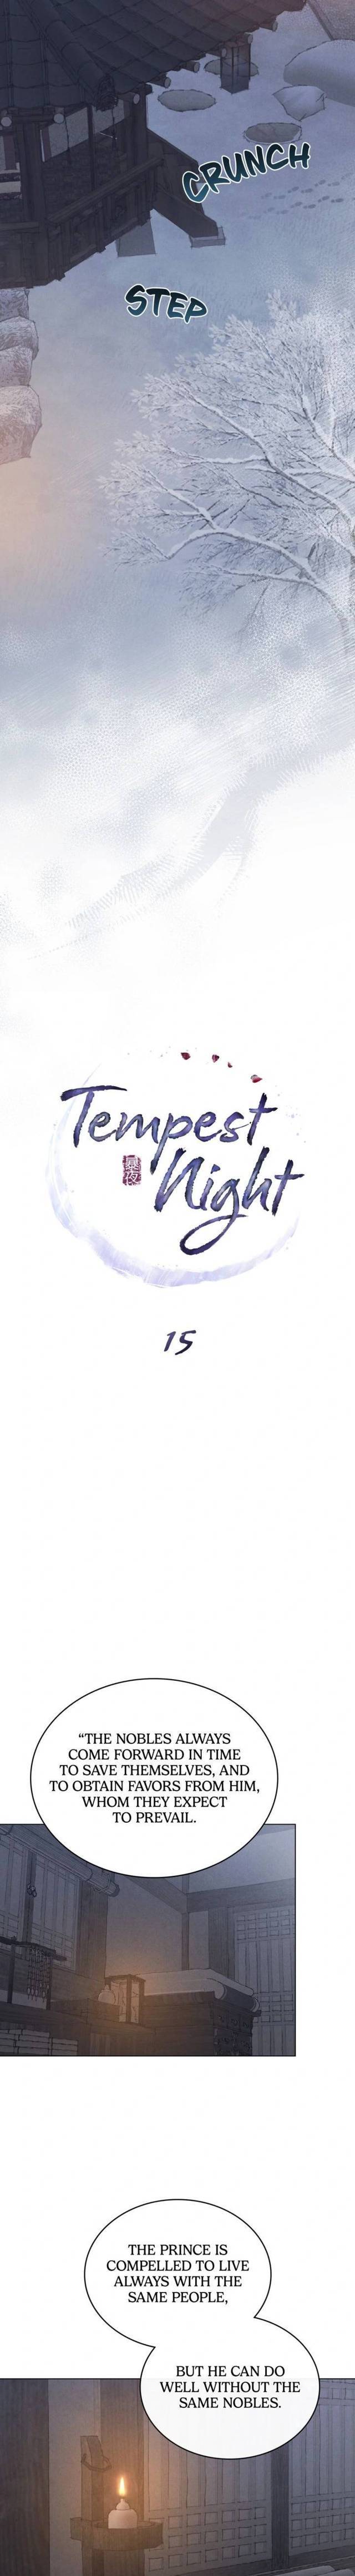 CRUNCH
STEP
Tempest
暴夜
Night
15
“THE NOBLES ALWAYS
COME FORWARD IN TIME
TO SAVE THEMSELVES, AND
TO OBTAIN FAVORS FROM HIM,
WHOM THEY EXPECT
TO PREVAIL.
THE PRINCE IS
COMPELLED TO LIVE
ALWAYS WITH THE
SAME PEOPLE,
BUT HE CAN DO
WELL WITHOUT THE
SAME NOBLES.